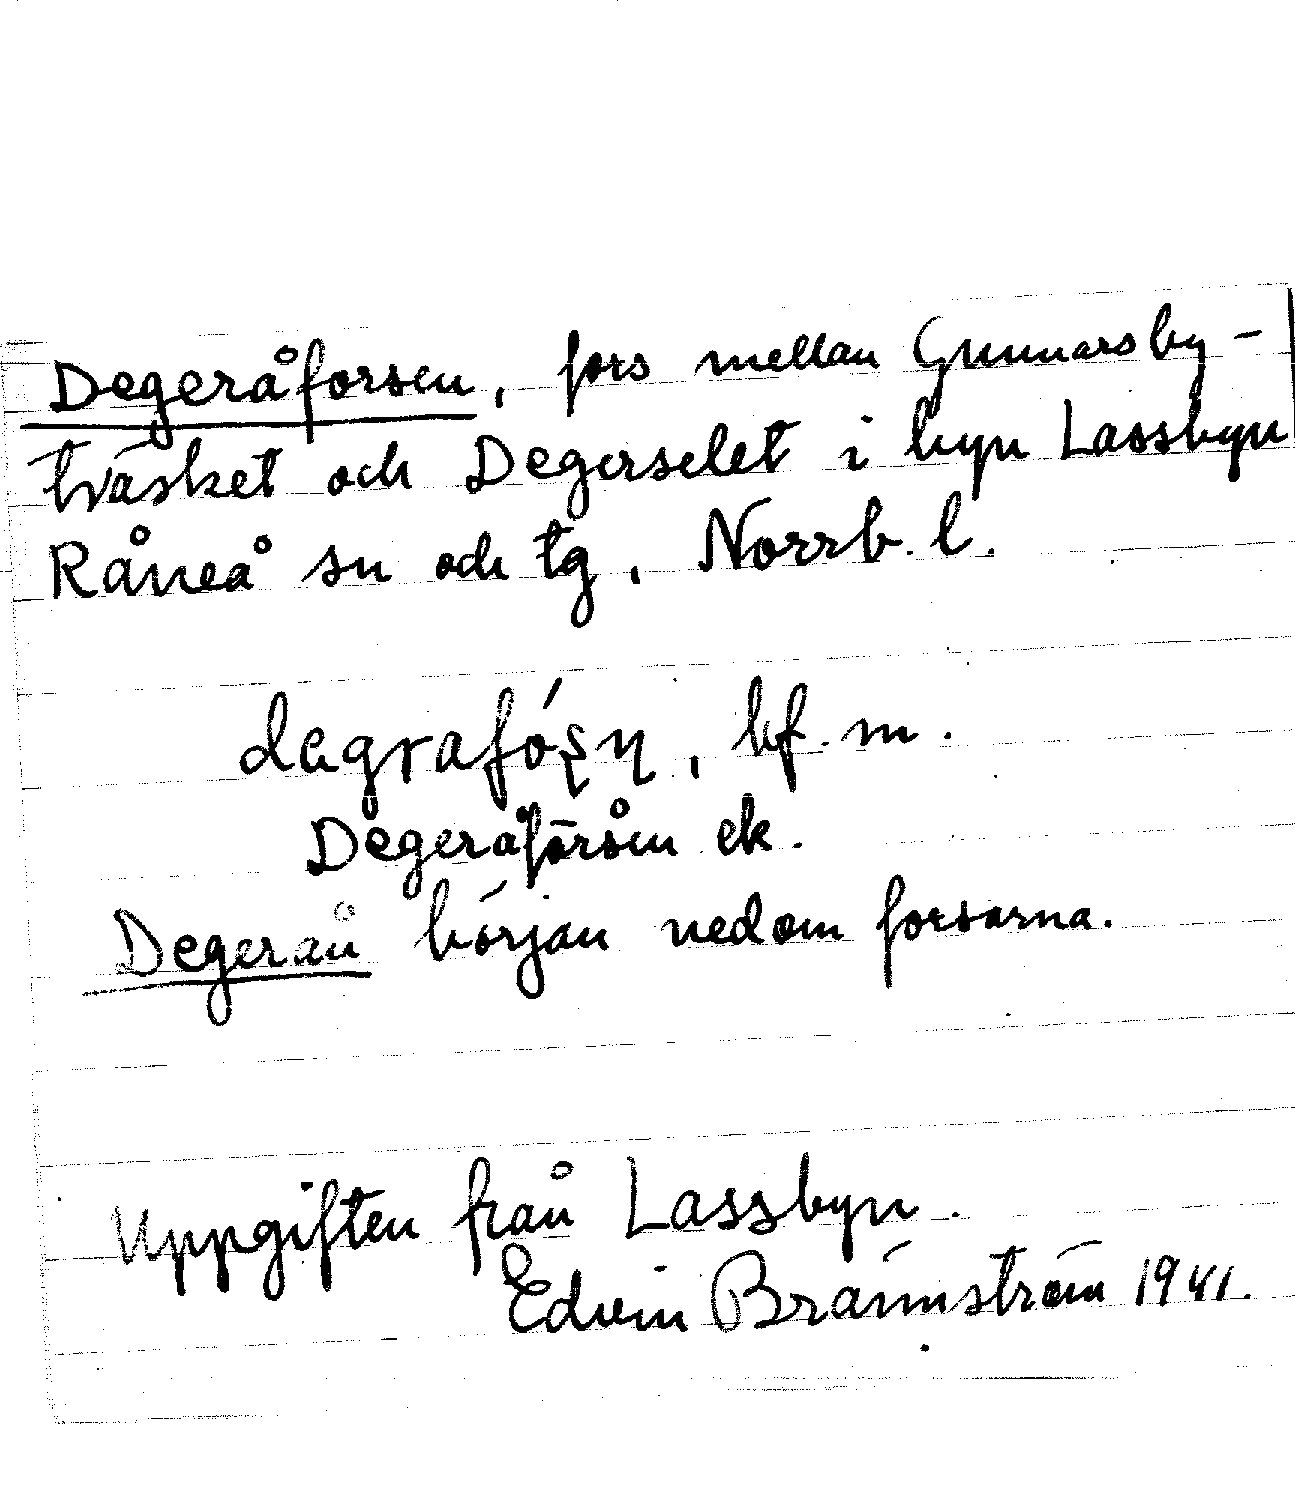 Degeråforsen, fors mellan Gunnarsby-
träsket och Degerselet i byn Lassbyn
Råneå sn och tg, Norrb. l.
dagrafóʂn̩, bf. m.
Degeråforsen ek.
Degerån början nedom forsarna.
Uppgiften från Lassbyn.
Edvin Brännström 1941.